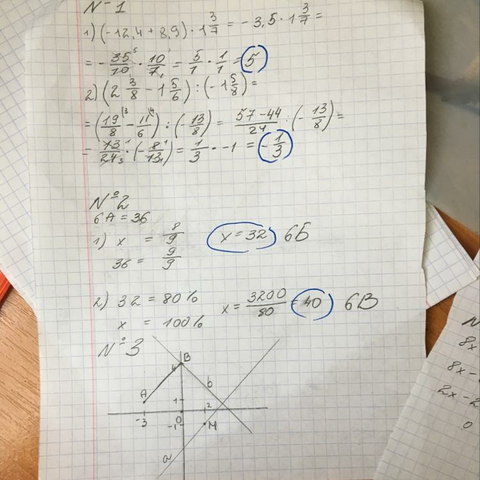 №1
1) (-12,4 + 8,9) · 1 3/7 = -3,5 · 1 3/7 =
= -35/10 · 10/7 = 5/1 · 1/1 = 5
2) (2 3/8 - 1 5/6) : (-1 5/8) =
= (19/8 - 11/6) : (13/8) = 57-44/24 : (-13/8) =
= 13/24 · (-8/13) = 1/3 · -1 = -1/3
№2
6А = 36
1) x = 8/9 x = 32 6Б
36 = 9/9
2) 32 = 80% x = 3200/80 = 40 6В
x = 100%
№3
B
4
A
b
1
-3
0
2
-1
M
a
N
8x
8x -
2x - 2
0